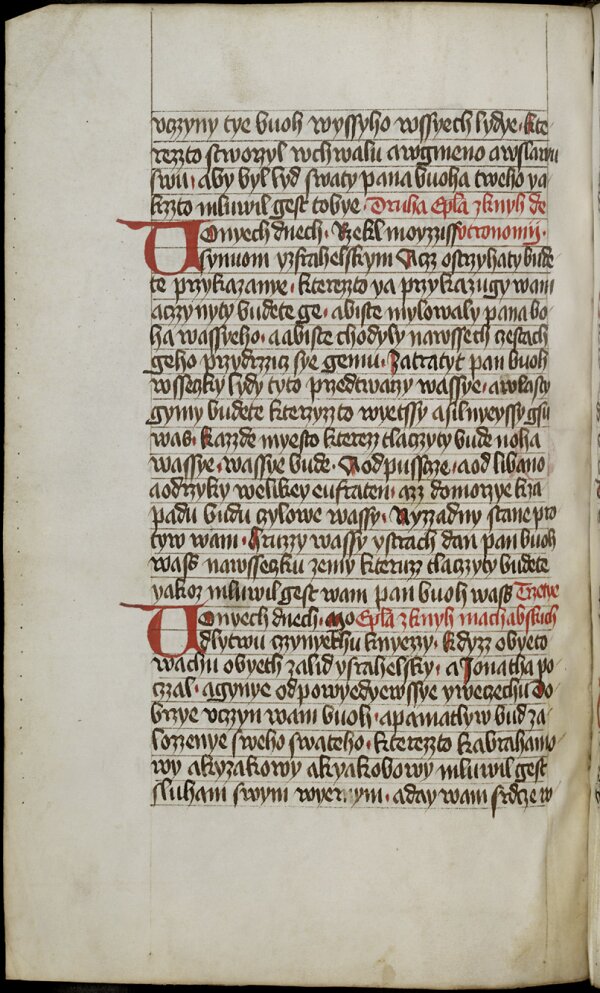 vczyny tye buoh wyssyho wssyech lydye · kte
rezzto stworzyl wchwalu awgmeno awslawu
swu · aby byl lyd swaty pana buoha tweho ya
kzto mluwil gest tobye · Druha Epla zknyh de
Wonyech dnech · Rzekl moyzzuss vtronomij ·
synuom yzrahelskym Acz ostrzyhaty bude
te przykazanye · kterezzto ya przykazugy wam
aczynyty budete ge · abiste mylowaly pana bo
ha wassyeho · aabiste chodyly nawssech czestach
geho przydrzicz sye gemu · Zatratyt pan buoh
wsseczky lydy tyto przedtwarzy wassye · awlasty
gymy budete kterzyzto wyetssy asilnyeyssy gsu
was · Kazzde myesto kterez tlaczyty bude noha
wassye · wassye bude · Aodpusscze · aod libano
aodrzyky welikey eufraten · azz domorzye kza
padu budu czylowe wassy · Nyzzadny stane pro
tyw wam · Hruzzy wassy ystrach dan pan buoh
wass nawsseczku zemy kteruz tlaczyty budete
yakoz mluwil gest wam pan buoh wass Trzetye
Wonyech dnech · Mo Epla zknyh machabskich
dlytwu czynyechu knyezzy · kdyzz obyeto
wachu obyech zalid ysrahelsky · a Jonatha po
czal · agynye odpowyedyewssye yweczechu Do
brzye vczyn wam buoh · apamatlyw bud za
lozzenye sweho swateho · kterezzto kabrahamo
wy akyzakowy akyakobowy mluwil gest
sluham swym · aday wam srdcze w